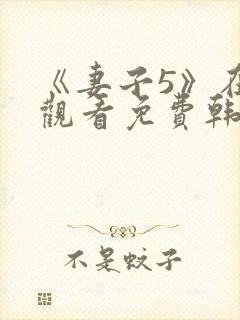 《妻子5》在
觀看免費韓
不是蚊子